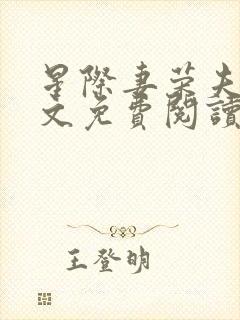 星際妻榮夫
文免費閱讀
王登明